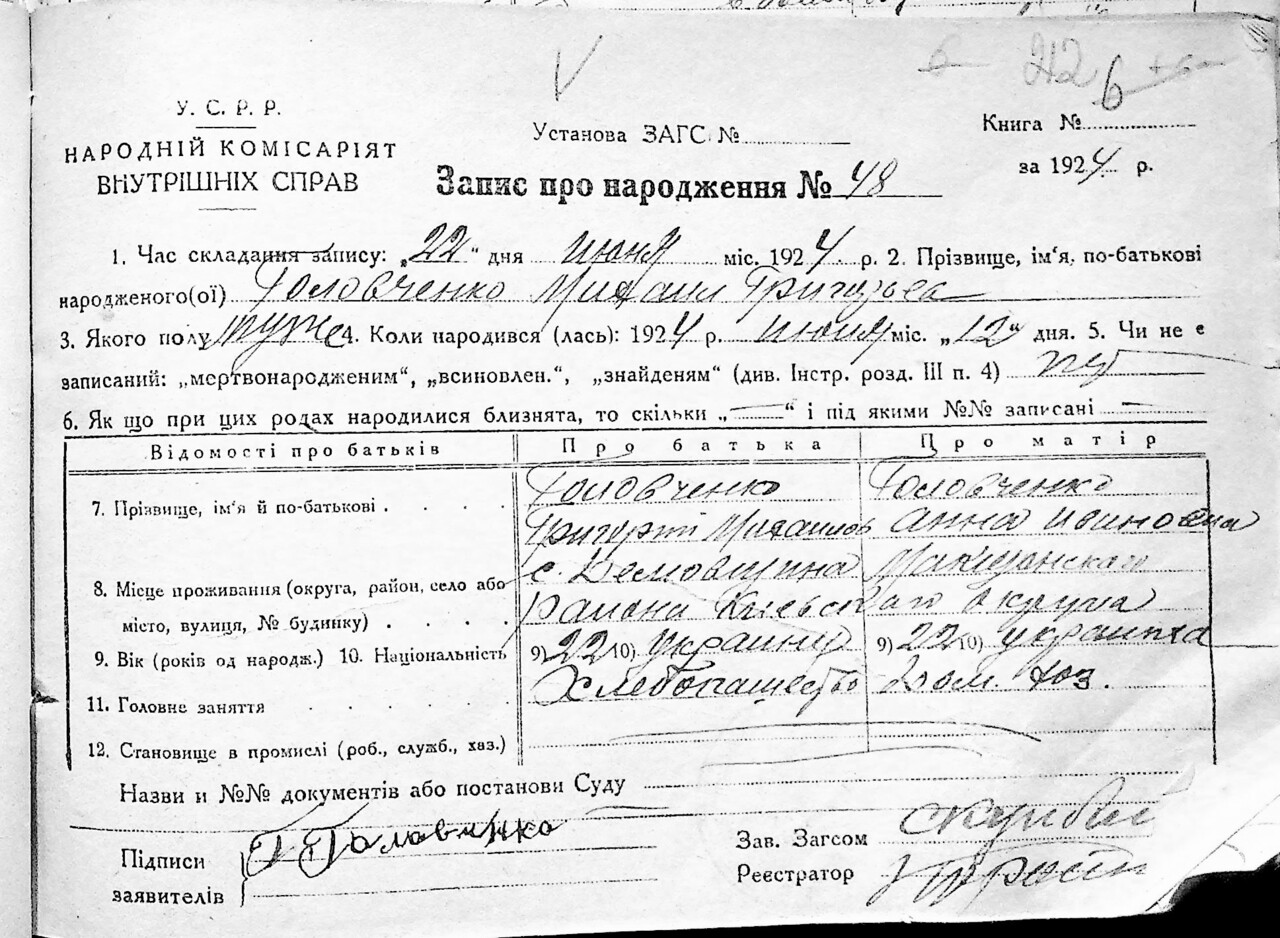 212 6
У. С. Р. Р.
НАРОДНІЙ КОМІСАРІЯТ
ВНУТРІШНІХ СПРАВ
Установа ЗАГС №
Книга №
за 1924 р.
Запис про народження № 48
1. Час складання запису: „22“ дня июня міс. 1924 р. 2. Прізвище, ім'я, по-батькові
народженого(ої) Головченко Михаил Григорьев
3. Якого полу муже 4. Коли народився (лась): 1924 р. июня міс. „12“ дня. 5. Чи не є
записаний: „мертвонародженим“, „всиновлен.“, „знайденям“ (див. Інстр. розд. III п. 4) нет
6. Як що при цих родах народилися близнята, то скільки „—“ і під якими №№ записані —
Відомості про батьків Про батька Про матір
7. Прізвище, ім'я й по-батькові Головченко Головченко
Григорій Михайлов Анна Ивановна
8. Місце проживання (округа, район, село або с. Демовщина
місто, вулиця, № будинку) района Киевского округа
9. Вік (років од народж.) 10. Національність 9) 22 10) украинц 9) 22 10) украинка
11. Головне заняття Хлебопашество Дом. хоз.
12. Становище в промислі (роб., служб., хаз.)
Назви и №№ документів або постанови Суду
Підписи Г Головченко
заявителів
Зав. Загсом
Реєстратор